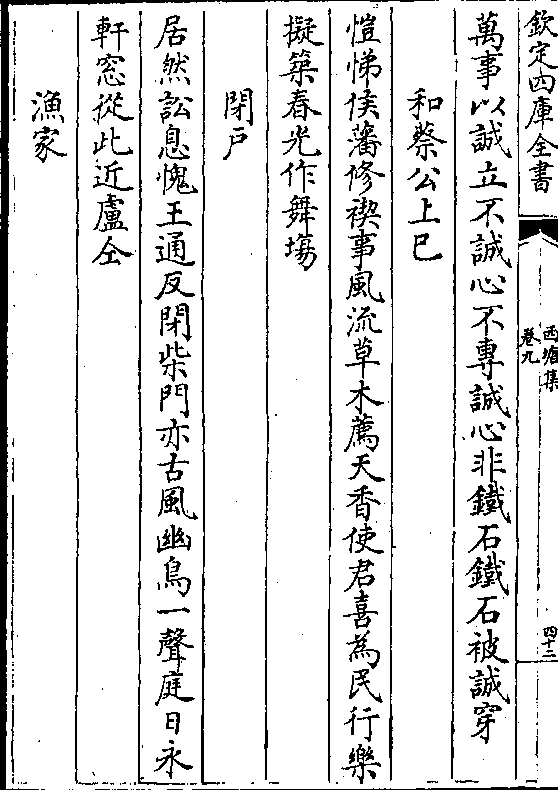 欽定四庫全書
西塘集
卷九
四十二
萬事以誠立不誠心不專誠心非鐵石鐵石被誠穿
和蔡公上巳
愷悌侯藩修禊事風流草木薦天香使君喜為民行樂
擬築春光作舞塲
閉戶
居然訟息愧王通反閉柴門亦古風幽鳥一聲庭日永
軒窓從此近盧仝
漁家